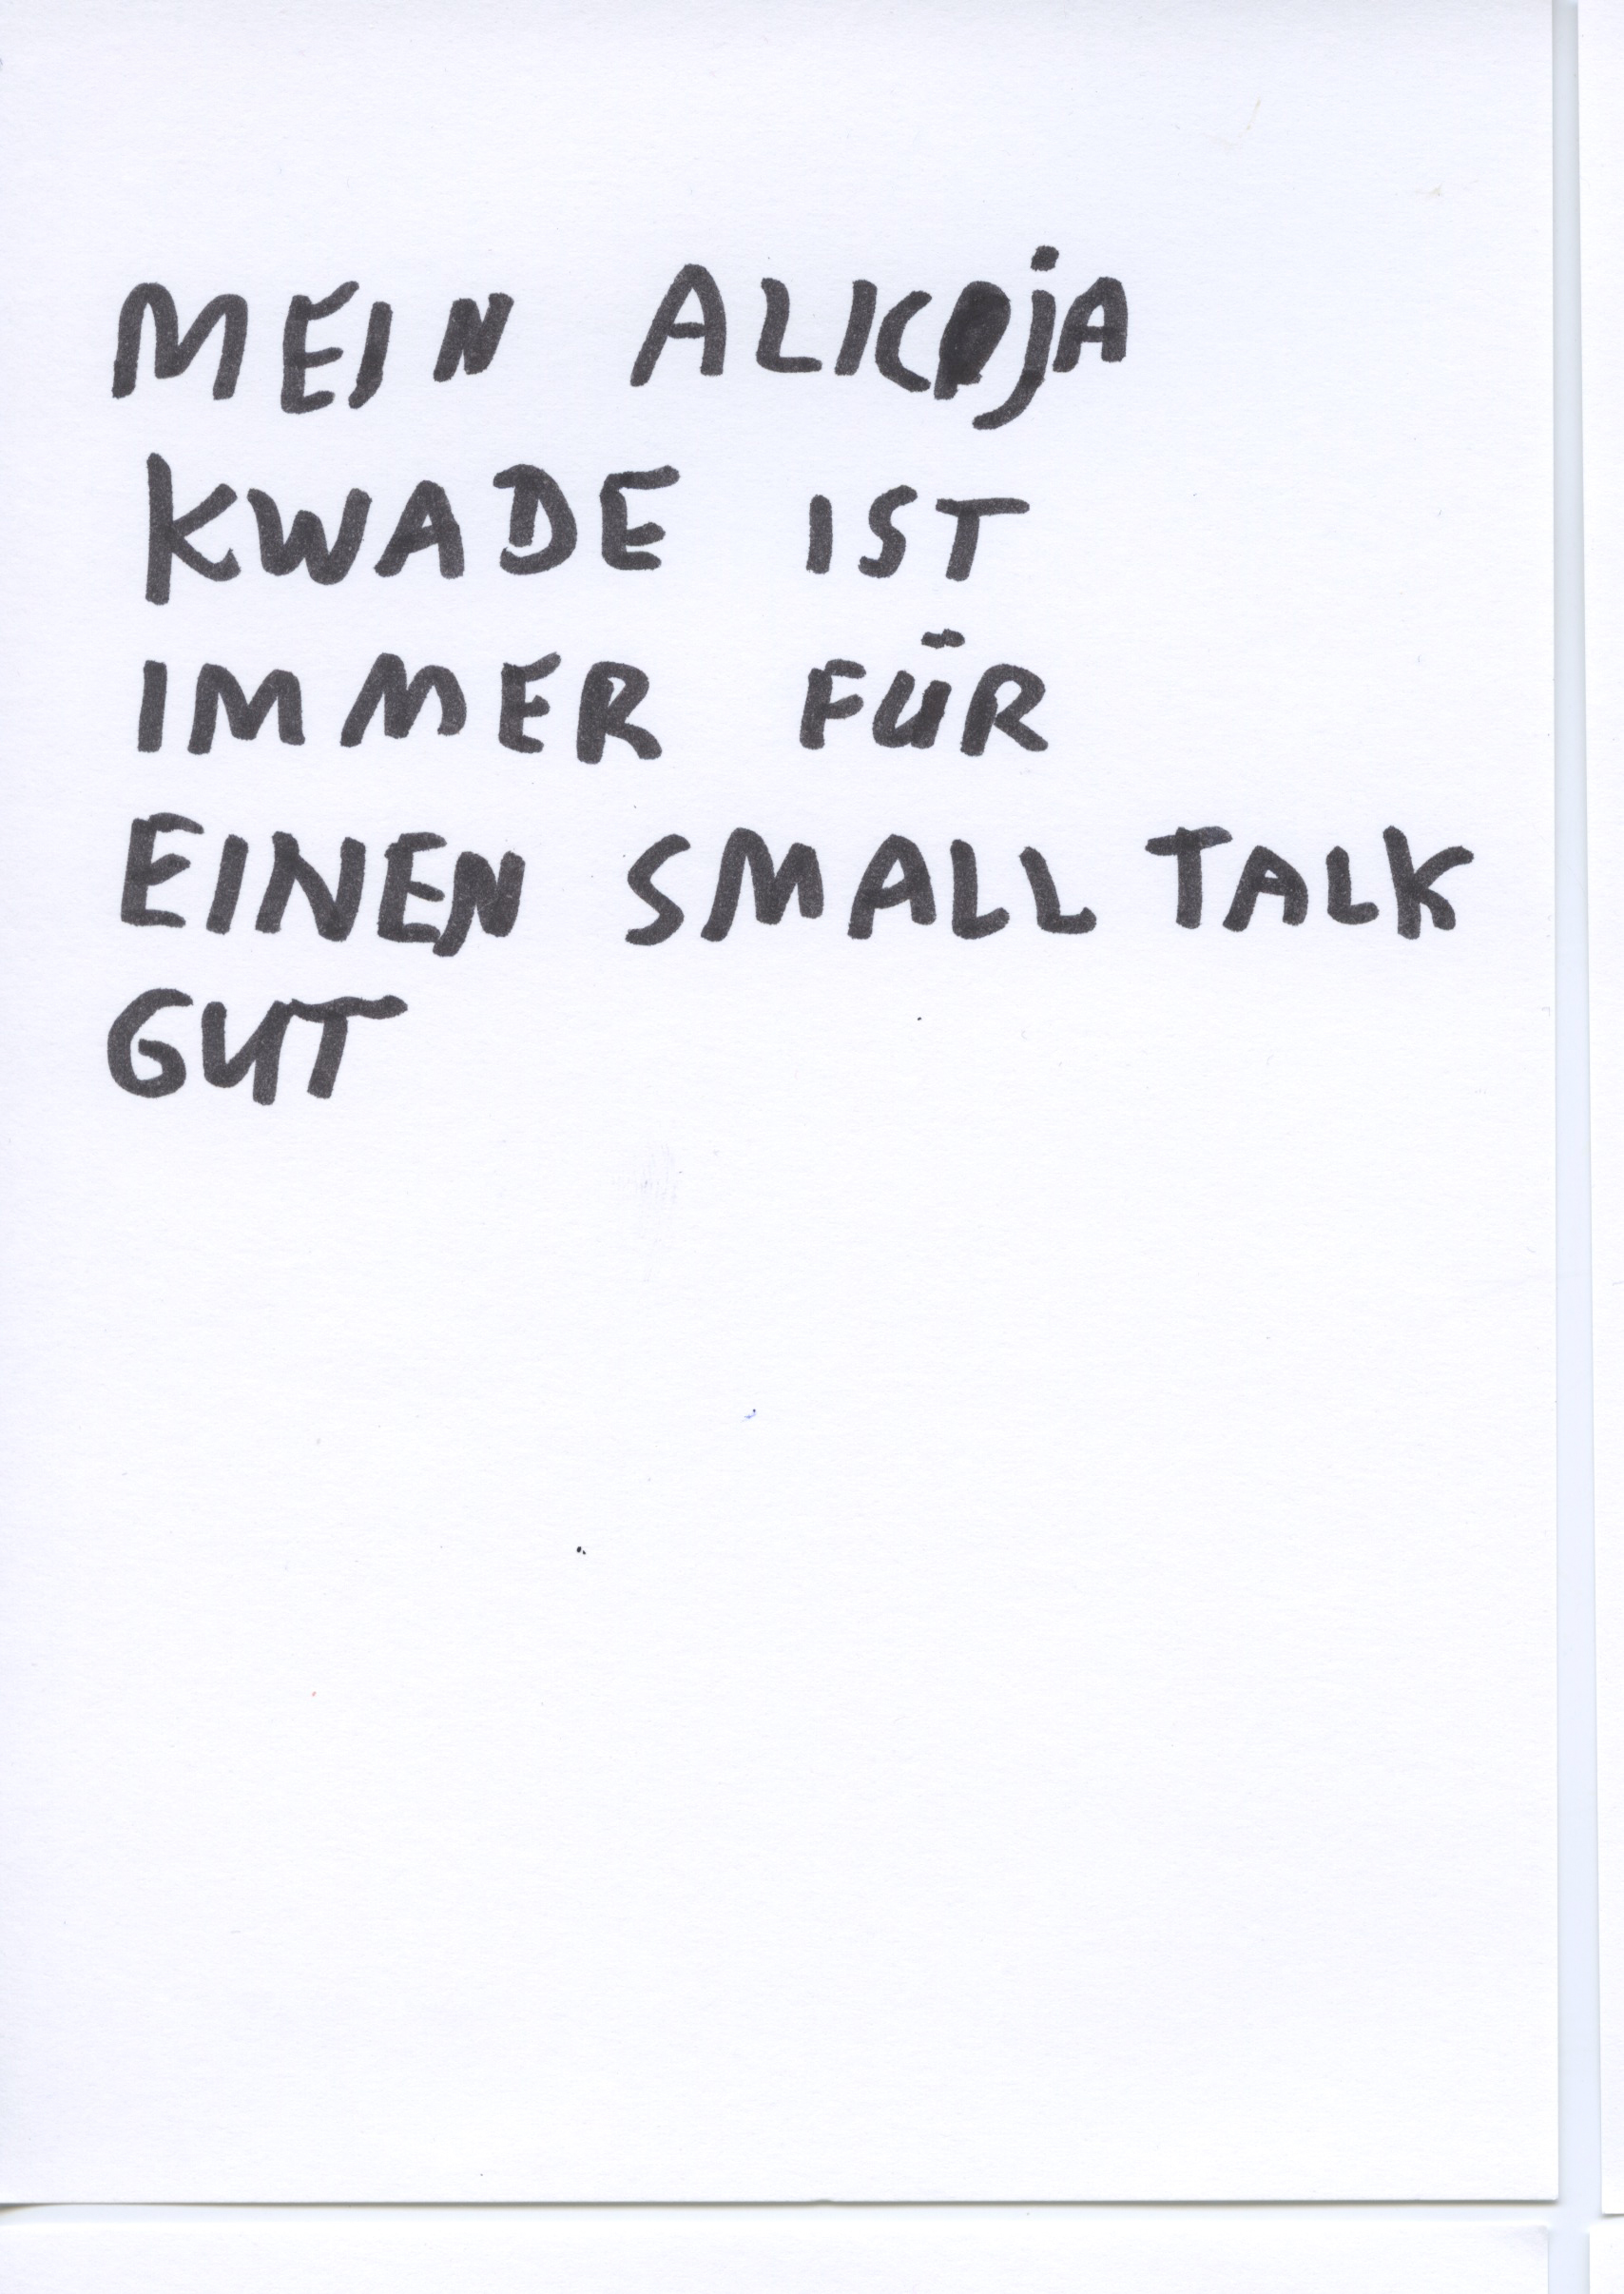 MEIN ALICjA
KWADE IST
IMMER FÜR
EINEN SMALL TALK
GUT